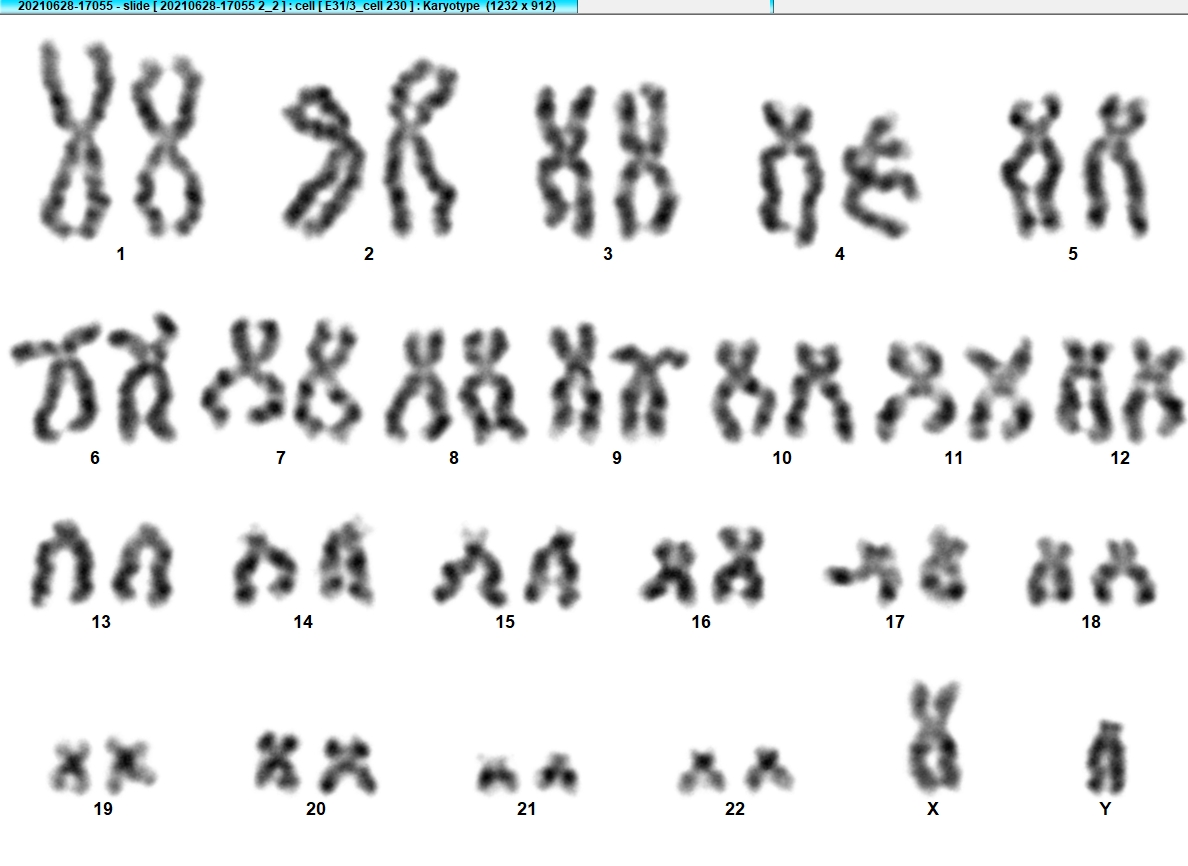 20210628-17055 - slide [ 20210628-17055 2_2 ] : cell [ E31/3_cell 230 ] : Karyotype (1232 x 912)
1 2 3 4 5
6 7 8 9 10 11 12
13 14 15 16 17 18
19 20 21 22 X Y